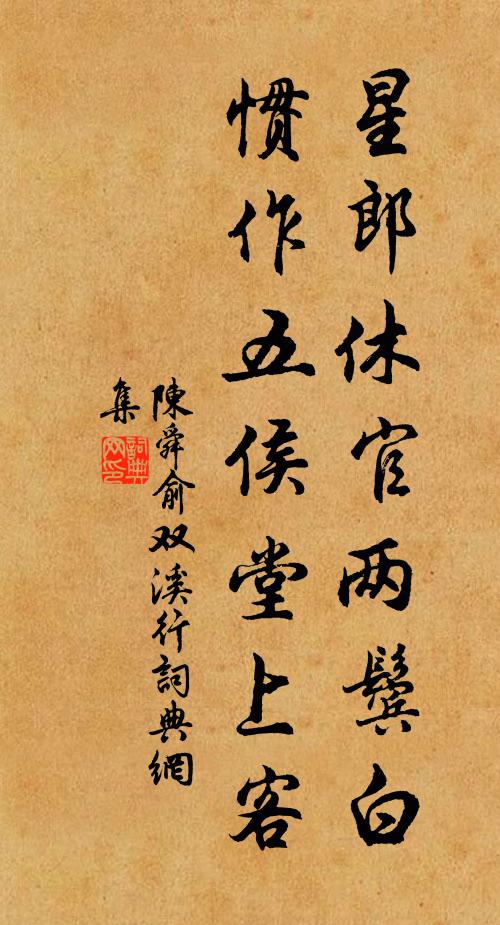 星郎休官两鬓白
惯作五侯堂上客
陳舜俞双溪行詞典網
集
詞典網印